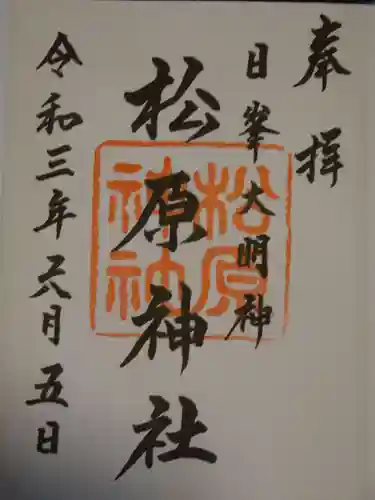 奉拝
日峯大明神
松原神社
松原神社
令和三年六月五日